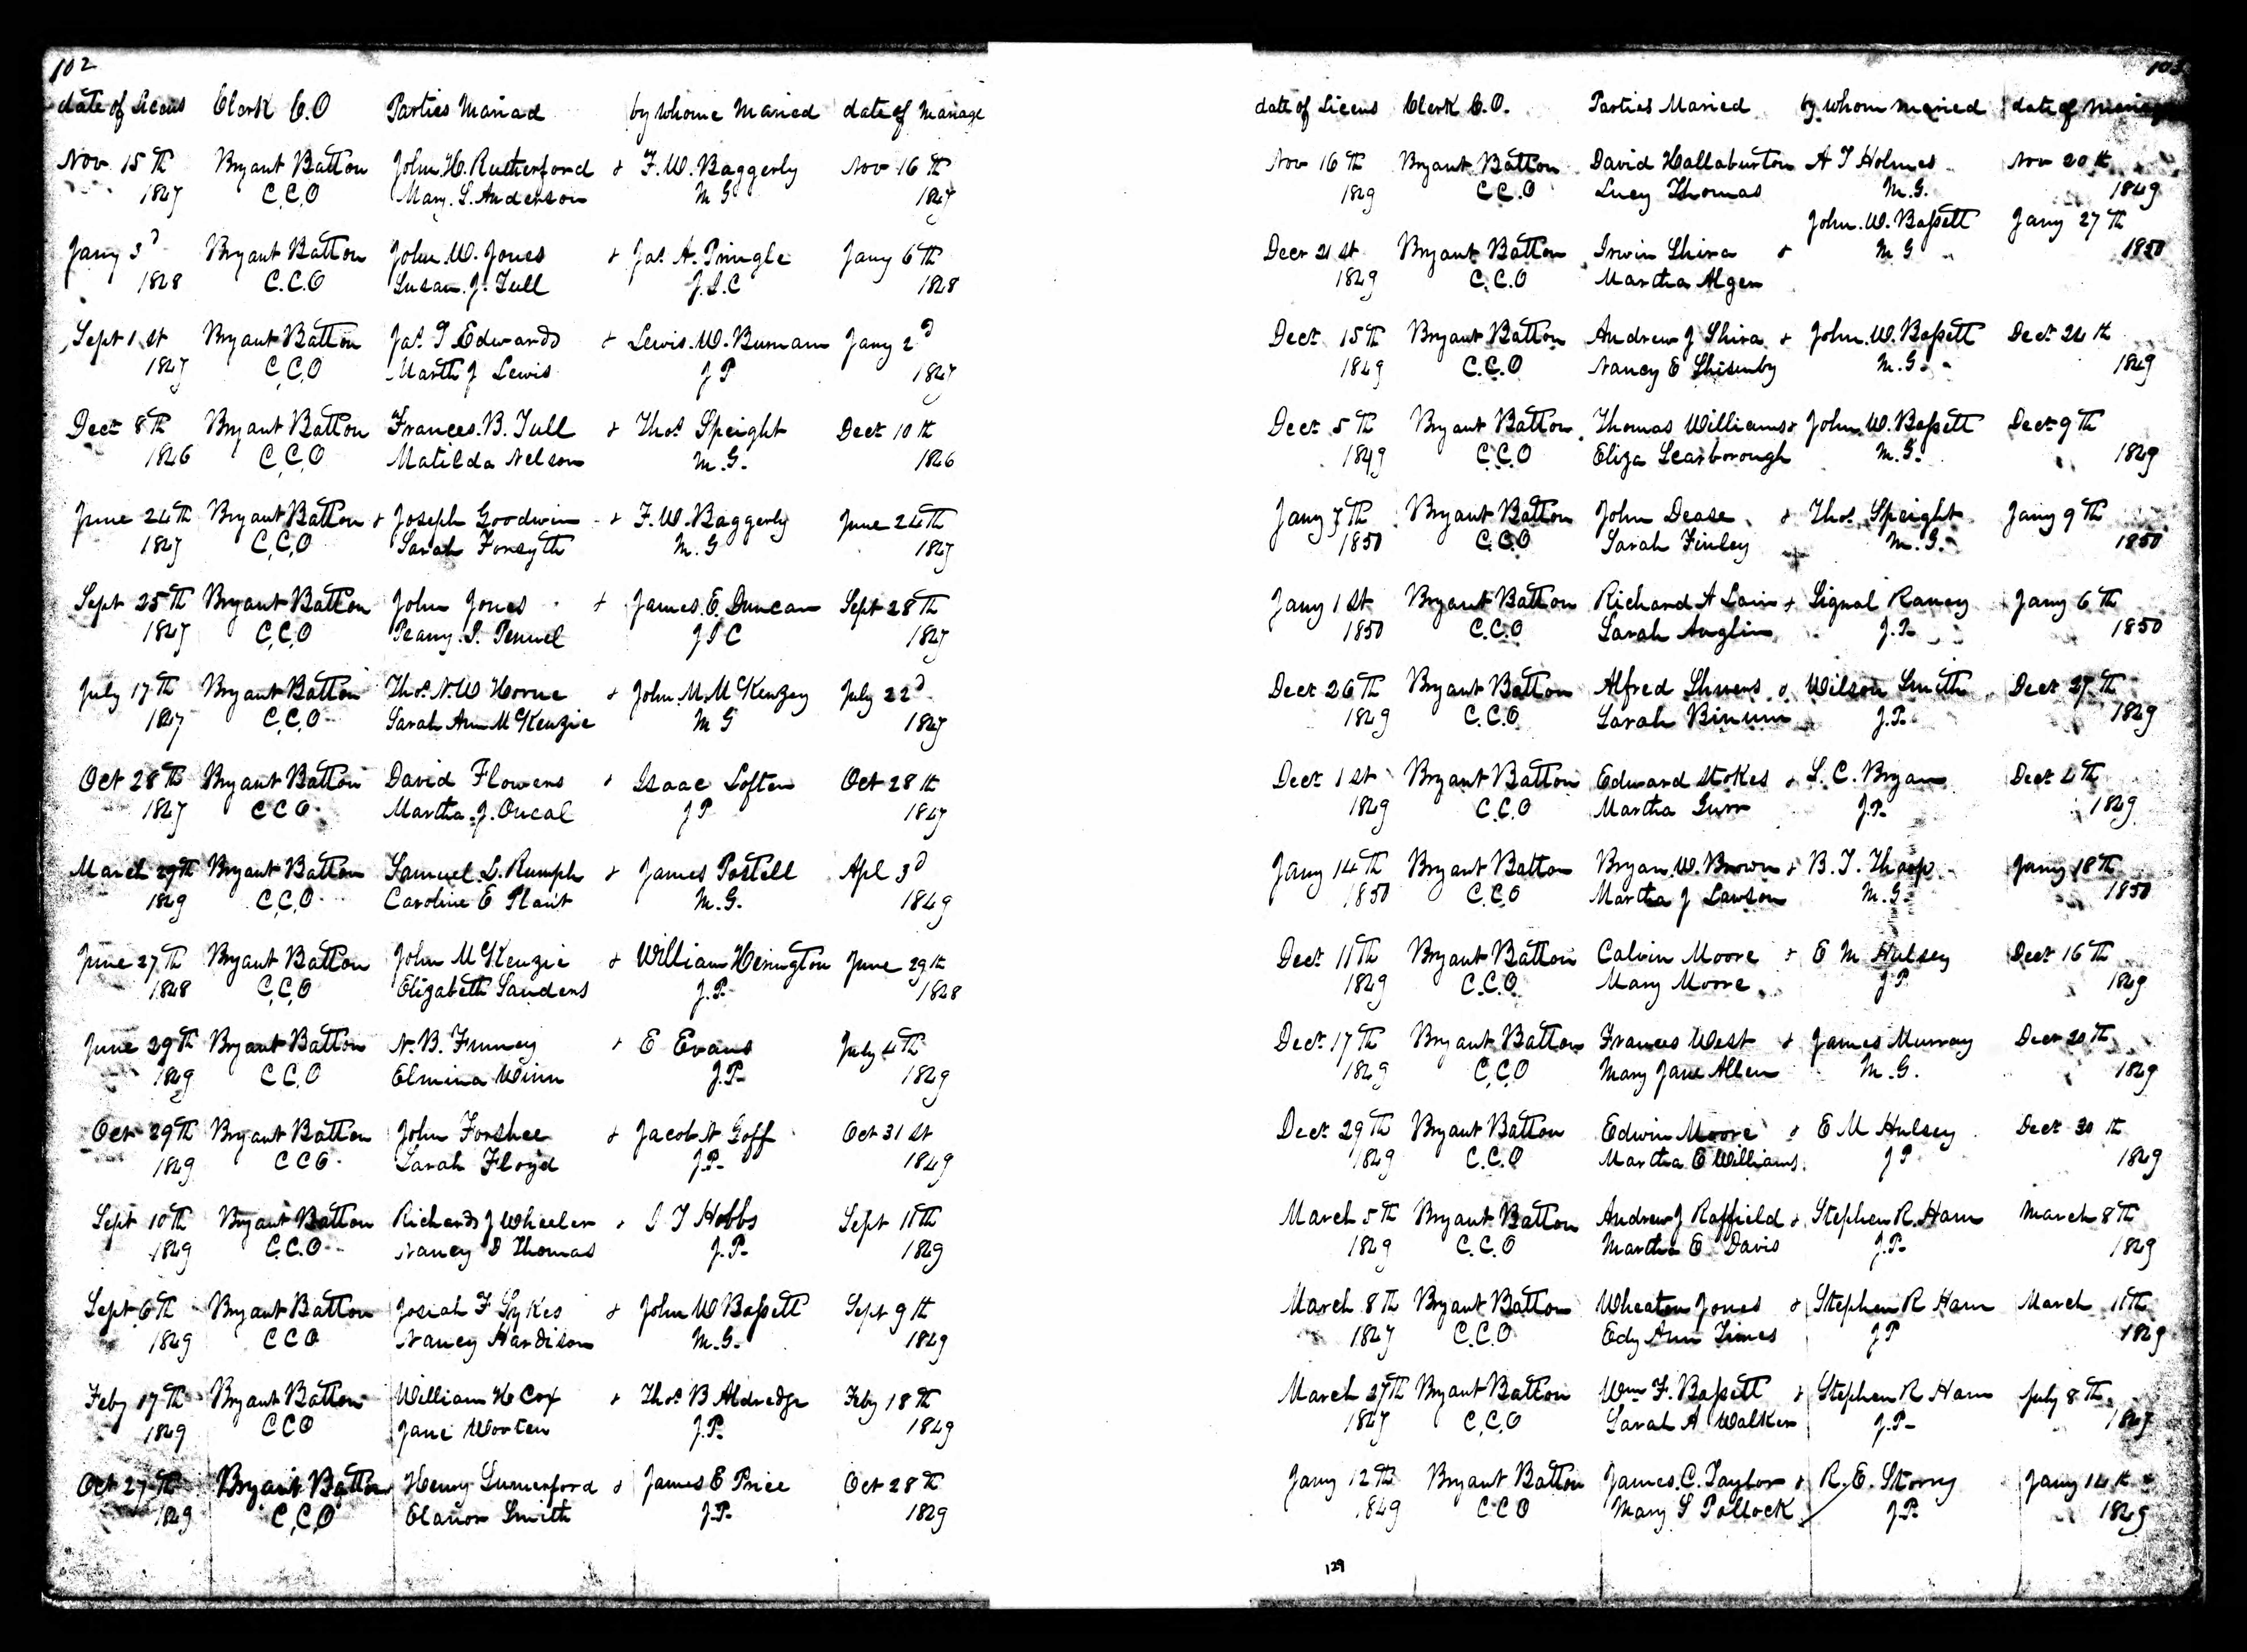 102
date of Licens Clerk C.O Parties Maried by whome Maried date of Mariage
Nov 15th Bryant Batton John H. Rutherford & F. W. Baggerly Nov 16th
1847 C.C.O Mary. S. Anderson M G 1847
Jany 3d Bryant Batton John. W. Jones & Jas. A. Pringle Jany 6th
1848 C.C.O Susan. J. Tull J.I.C 1848
Sept 1st Bryant Batton Jas. T Edwards & Lewis. W. Burnam Jany 2d
1847 C.C.O Marth J Lewis J P 1847
Decr 8th Bryant Batton Frances. B. Tull & Thos Speight Decr 10th
1846 C.C.O Matilda Nelson M.G. 1846
June 24th Bryant Batton & Joseph Goodwin & F. W. Baggerly June 24th
1847 C.C.O Sarah Forsyth M.G 1847
Sept 25th Bryant Batton John Jones & James. E. Duncan Sept 28th
1847 C.C.O Peany. S. Penuel J I C 1847
July 17th Bryant Batton Thos. N. W Horne & John. M. McKenzey July 22d
1847 C.C.O Sarah Ann McKenzie M G 1847
Oct 28th Bryant Batton David Flowers & Isaac Loften Oct 28th
1847 C C O Martha. J. Oneal J P 1847
March 29th Bryant Batton Samuel. L. Rumph & James Postell Apl 3d
1849 C.C.O Caroline E Plant M.G. 1849
June 27th Bryant Batton John McKenzie & William Herington June 29th
1848 C.C.O Elizabeth Sanders J.P. 1848
June 29th Bryant Batton N. B. Finney & E Evans July 4th
1849 C C.O Elmina Winn J.P. 1849
Oct 29th Bryant Batton John Forshee & Jacob N Goff Oct 31st
1849 C C O Sarah Floyd J.P. 1849
Sept 10th Bryant Batton Richard J Wheeler & I T Hobbs Sept 11th
1849 C.C.O Nancy D Thomas J.P. 1849
Sept 6th Bryant Batton Josiah F Sykes & John W Bassett Sept 9th
1849 C C O Nancy Hardison M.G. 1849
Feby 17th Bryant Batton William H Cox & Thos. B Aldredge Feby 18th
1849 C C O Jane Worten J.P. 1849
Oct 27th Bryant Batton Henry Sumerford & James E Price Oct 28th
1849 C.C.O Elanor Smith J.P. 1849
103
date of Licens Clerk C.O. Parties Maried by whom maried date of
Nov 16th Bryant Batton David Hallaburton A T Holmes Nov 20th
1849 C C.O Lucy Thomas M.G. 1849
John. W. Bassett Jany 27th
Decr 21st Bryant Batton Irwin Shira & M G 1850
1849 C.C.O Martha Algen
Decr 15th Bryant Batton Andrew J Shira & John. W. Bassett Decr 24th
1849 C.C.O Nancy E M.G. 1849
Decr 5th Bryant Batton Thomas Williams & John. W. Bassett Decr 9th
1849 C.C.O Eliza Scarborough M.G. 1849
Jany 7th Bryant Batton John Dease & Thos. Speight Jany 9th
1850 C.C.O Sarah Finley M.G. 1850
Jany 1st Bryant Batton Richard A Lain & Signal Raney Jany 6th
1850 C.C.O Sarah Anglin J.P. 1850
Decr 26th Bryant Batton Alfred & Wilson Smith Decr 27th
1849 C.C.O Sarah Binum J.P. 1849
Decr 1st Bryant Batton Edward Stokes & S. C. Bryan Decr 4th
1849 C.C.O Martha Gurr J.P. 1849
Jany 14th Bryant Batton Bryan. W. Brown & B. T. Tharp Jany 18th
1850 C.C.O Martha J Lawson M.G. 1850
Decr 11th Bryant Batton Calvin Moore & E M Hulsey Decr 16th
1849 C.C.O. Mary Moore J P 1849
Decr 17th Bryant Batton Frances West & James Murray Decr 20th
1849 C.C.O Mary Jane Allen M.G. 1849
Decr 29th Bryant Batton Edwin Moore & E M Hulsey Decr 30th
1849 C.C.O Martha E Williams J P 1849
March 5th Bryant Batton Andrew J Raffield & Stephen R. Ham March 8th
1849 C.C.O Martha E Davis J.P. 1849
March 8th Bryant Batton Wheaton Jones & Stephen R Ham March 11th
1847 C.C.O Edy Ann Times J P 1849
March 27th Bryant Batton Wm F. Bassett & Stephen R Ham July 8th
1847 C.C.O Sarah A Walker J.P. 1847
Jany 12th Bryant Batton James. C. Taylor & R. E. Storry Jany 14th
1849 C C O Mary S Pollock J.P. 1849
129